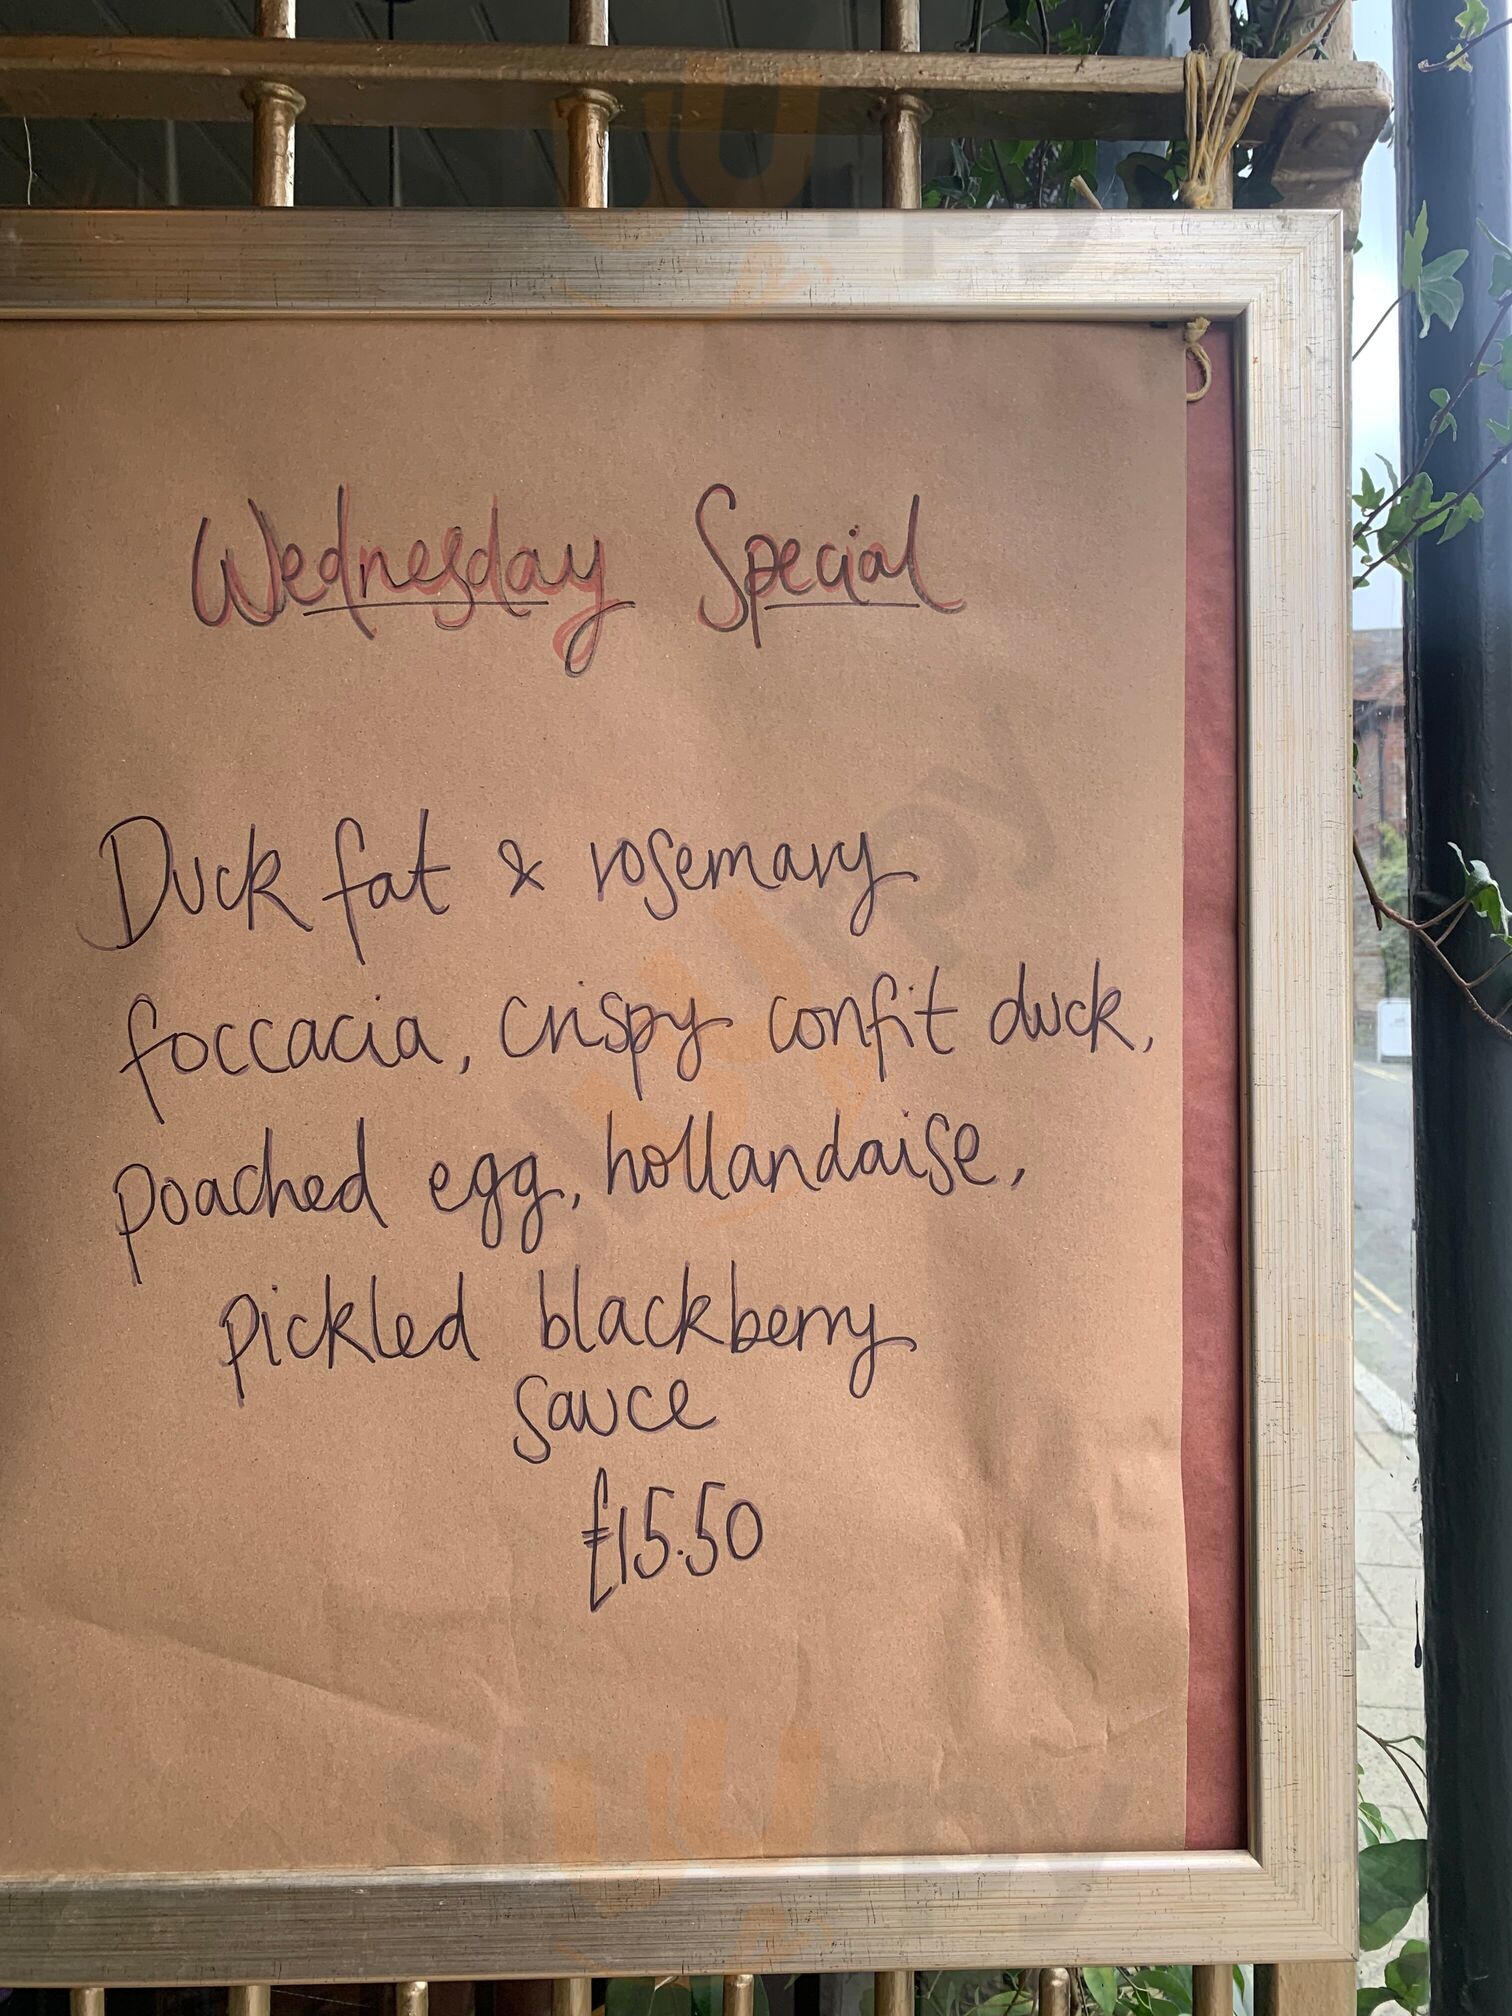 Wednesday Special
Duck fat & rosemary
foccacia, crispy confit duck,
poached egg, hollandaise,
pickled blackberry
sauce
£15.50